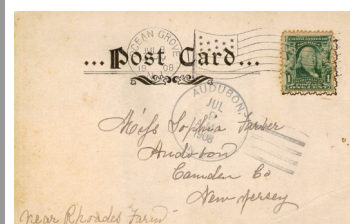 OCEAN GROVE
JUL 6
1908
...Post Card...
1
AUDUBON
JUL
6
1908
Miss Sophia Farber
Audubon
Camden Co
New Jersey
near Rhoades Farm